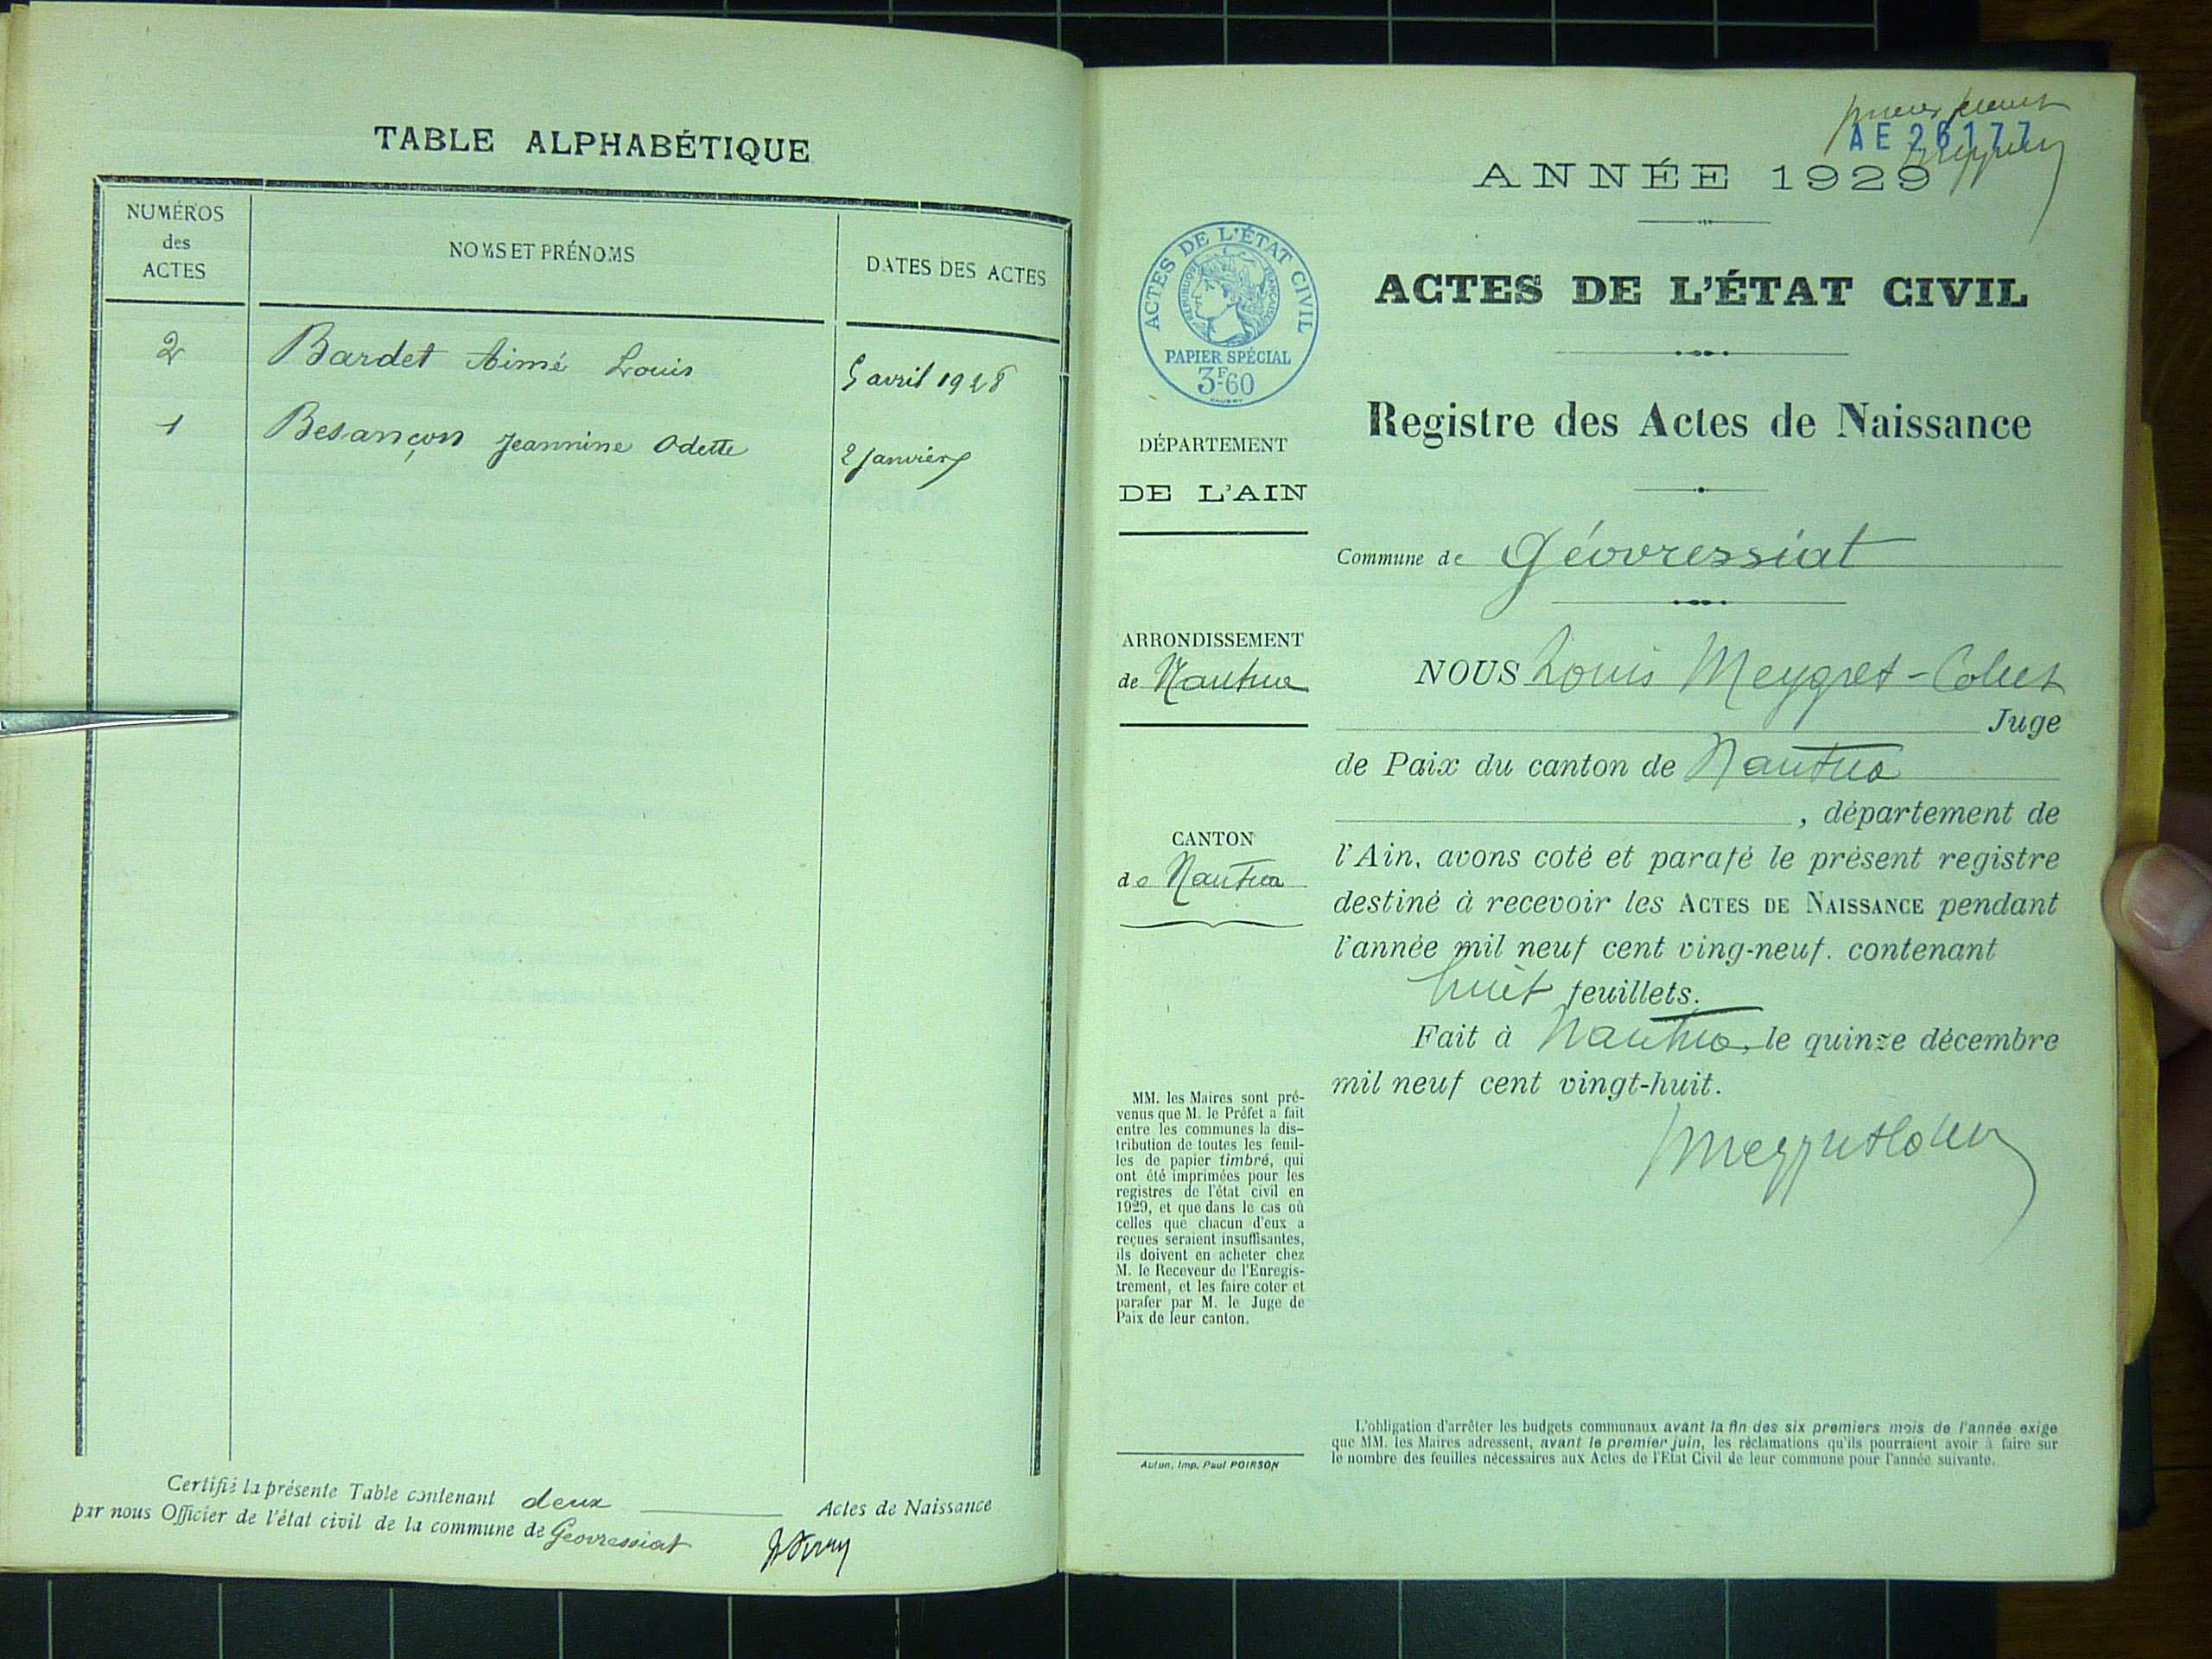 TABLE ALPHABÉTIQUE
NUMÉROS
des
ACTES
NOMS ET PRÉNOMS
DATES DES ACTES
2 Bardet Aimé Louis 5 avril 1928
1 Besançon Jeannine Odette 2 Janvier
Certifié la présente Table contenant deux Actes de Naissance
par nous Officier de l'état civil de la commune de Géovressiat
premier feuillet
AE 26177
ANNÉE 1929
ACTES DE L'ÉTAT CIVIL
RÉPUBLIQUE FRANÇAISE
PAPIER SPÉCIAL
3F.60
ACTES DE L'ÉTAT CIVIL
Registre des Actes de Naissance
DÉPARTEMENT
DE L'AIN
Commune de Géovressiat
ARRONDISSEMENT
de Nantua
CANTON
de Nantua
NOUS Louis Meygret-Collet
Juge
de Paix du canton de Nantua
, département de
l'Ain, avons coté et parafé le présent registre
destiné à recevoir les ACTES DE NAISSANCE pendant
l'année mil neuf cent ving-neuf. contenant
huit feuillets.
Fait à Nantua, le quinze décembre
mil neuf cent vingt-huit.
MM. les Maires sont pré-
venus que M. le Préfet a fait
entre les communes la dis-
tribution de toutes les feuil-
les de papier timbré, qui
ont été imprimées pour les
registres de l'état civil en
1929, et que dans le cas où
celles que chacun d'eux a
reçues seraient insuffisantes,
ils doivent en acheter chez
M. le Receveur de l'Enregis-
trement, et les faire coter et
parafer par M. le Juge de
Paix de leur canton.
Autun, Imp. Paul POIRSON
L'obligation d'arrêter les budgets communaux avant la fin des six premiers mois de l'année exige
que MM. les Maires adressent, avant le premier juin, les réclamations qu'ils pourraient avoir à faire sur
le nombre des feuilles nécessaires aux Actes de l'Etat Civil de leur commune pour l'année suivante.